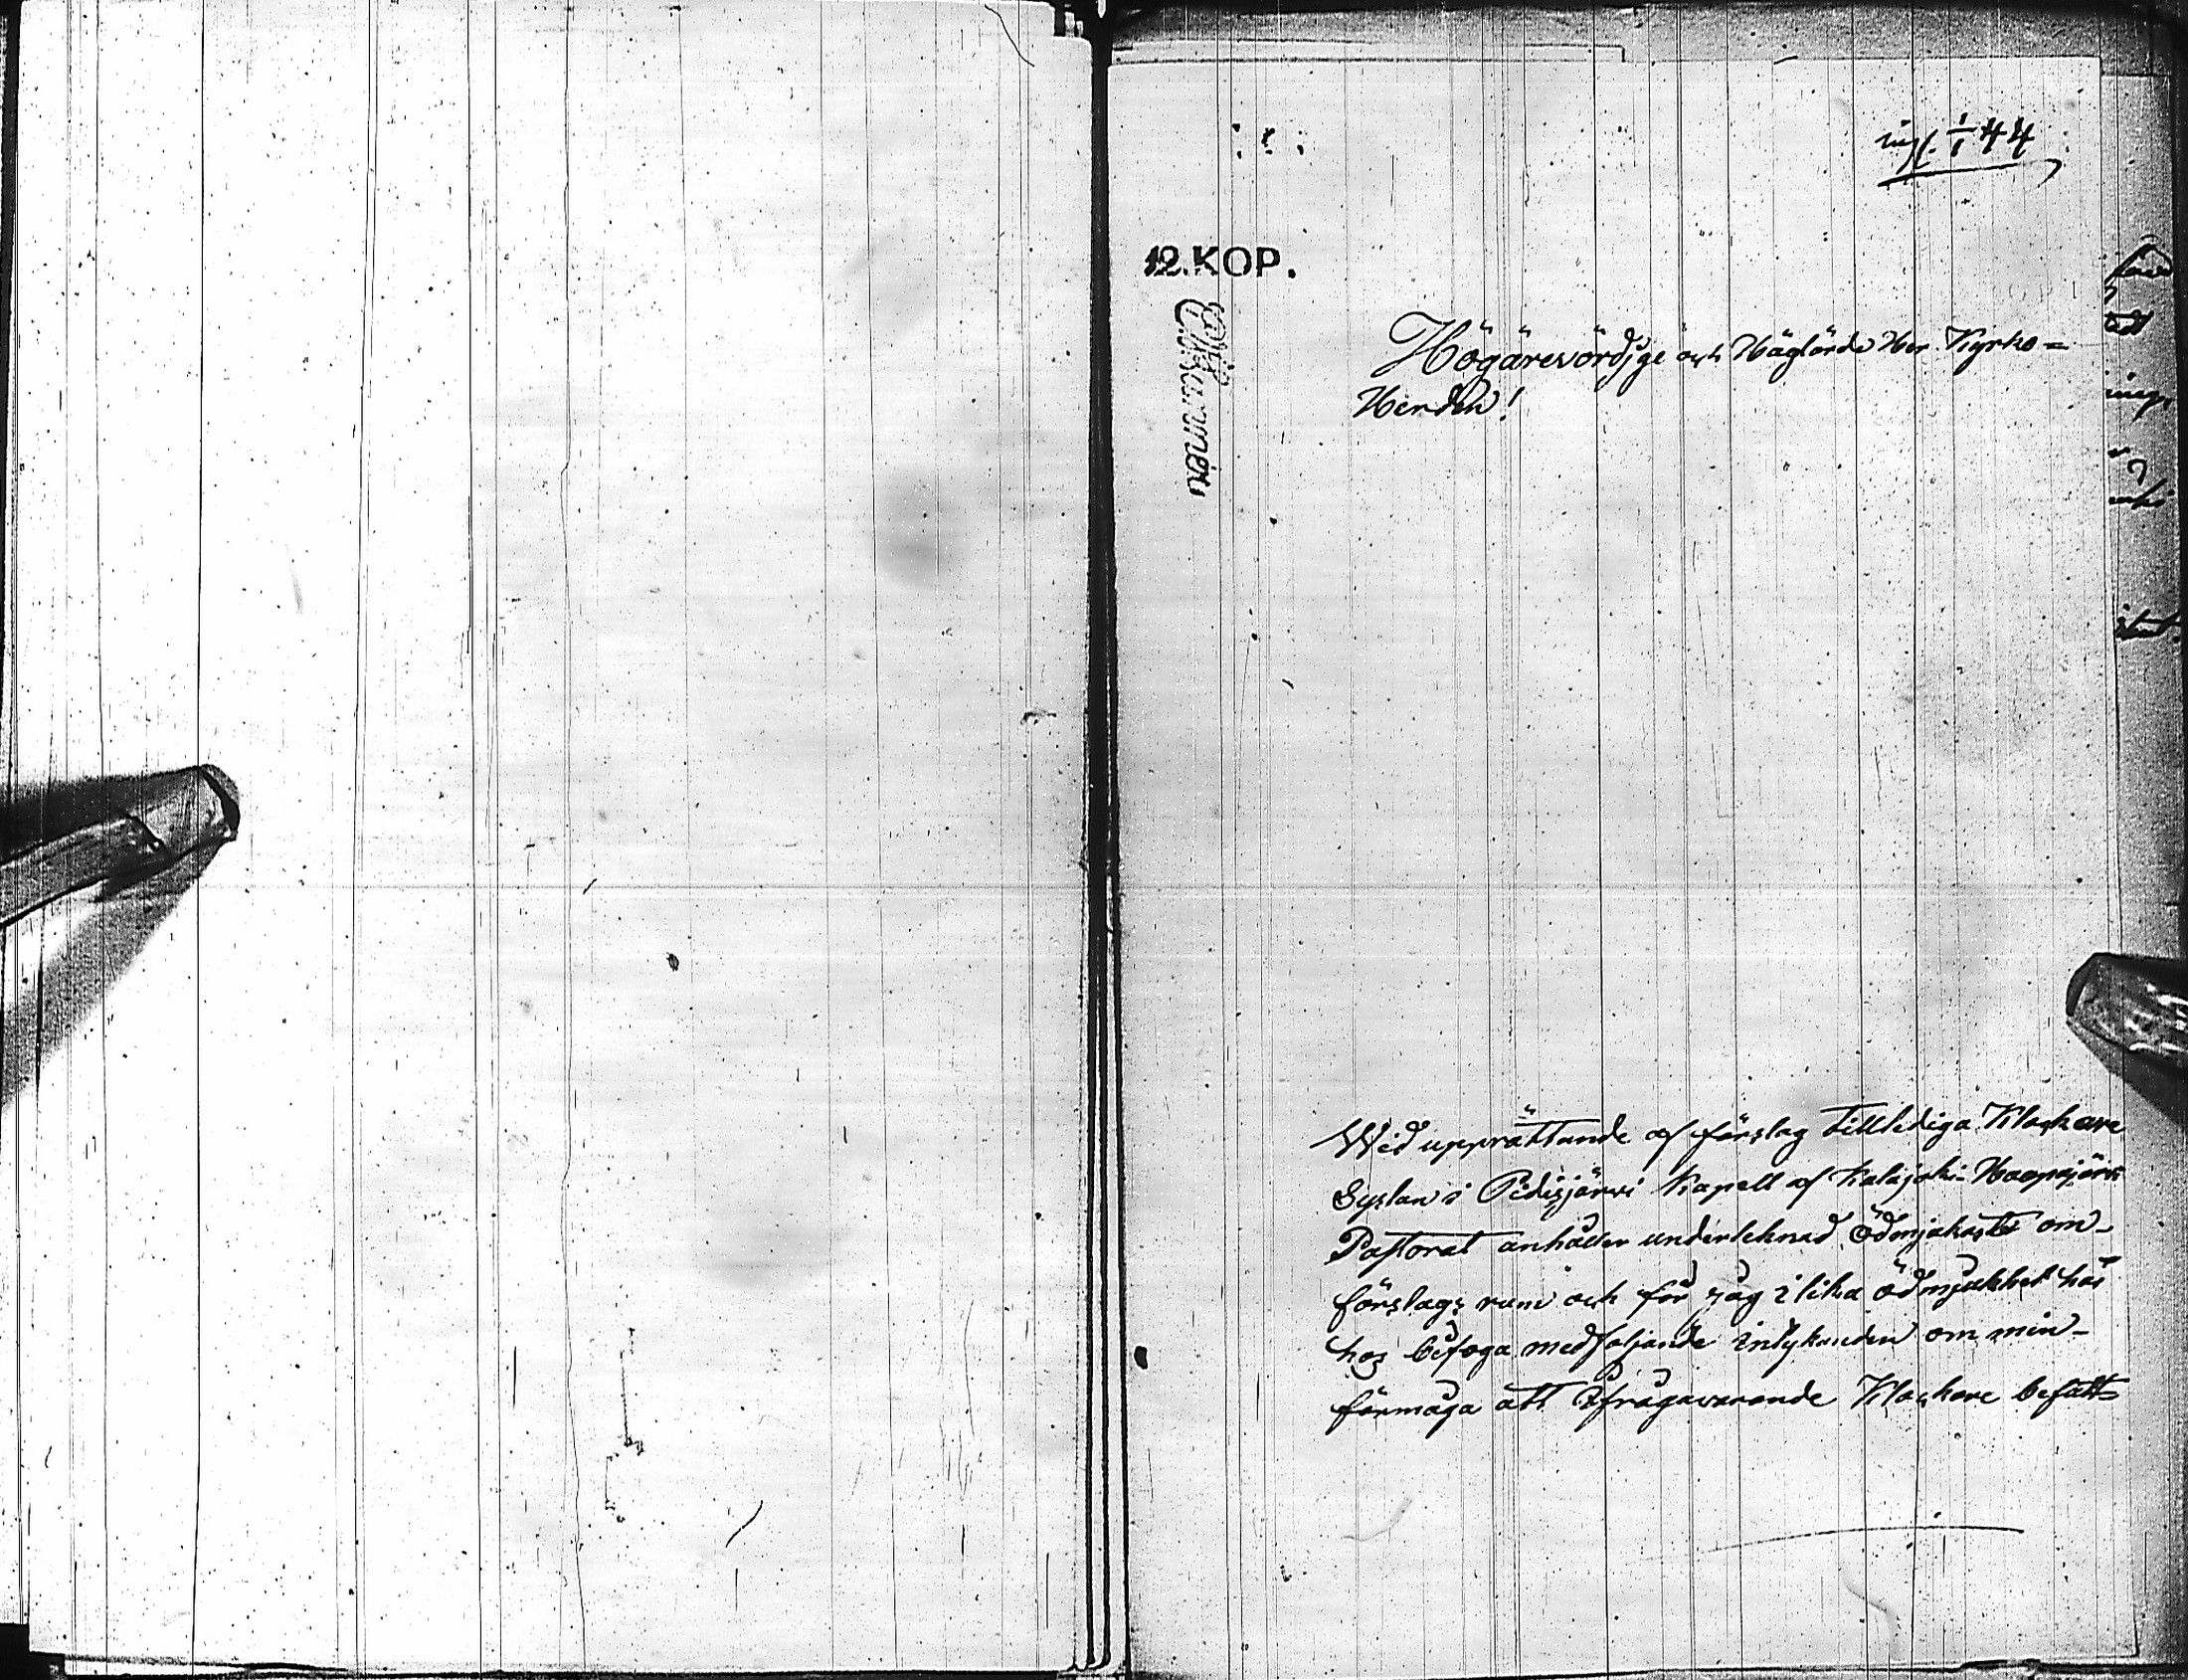 ingf. 1/1 44
12.KOP.
Högärevördjge och Höglärde Her Kyrko=
Herden!
Wid upprättande af förslag till lediga Klockare
Syslan i Pidisjärwi Kapell af Kalajoki Haapajärvi
Pastorat anhåller underteknad ödmjukaste om
förslags rum och får jag i lika ödmjukhet här
hos bifoga medföljande intykanden om min
förmåga att ifrågavarande Klockare befatt=